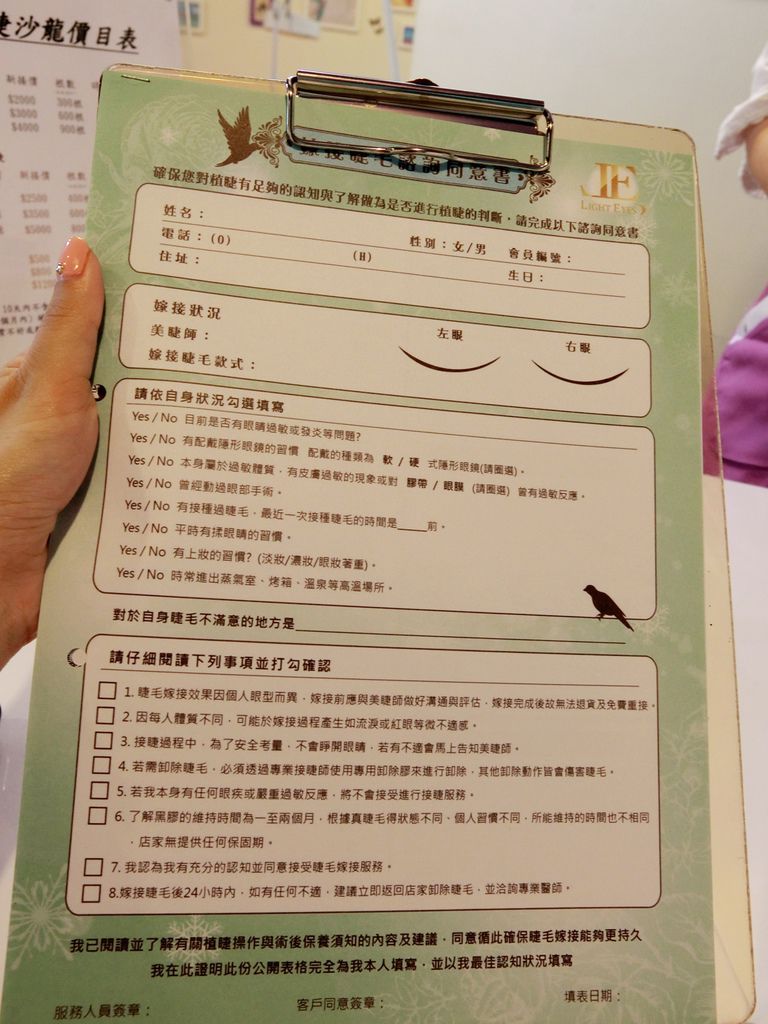 睫沙龍價目表
新接價 根數
$2000 300根
$3000 600根
$4000 900根
新接價 根數
$2500
$3500
$5000
$500
$800
嫁接睫毛諮詢同意書
LIGHT EYES
確保您對植睫有足夠的認知與了解做為是否進行植睫的判斷，請完成以下諮詢同意書
姓名：
電話：(O) (H) 性別：女/男 會員編號：
住址： 生日：
嫁接狀況 左眼 右眼
美睫師：
嫁接睫毛款式：
請依自身狀況勾選填寫
Yes / No 目前是否有眼睛過敏或發炎等問題?
Yes / No 有配戴隱形眼鏡的習慣 配戴的種類為 軟 / 硬 式隱形眼鏡(請圈選)。
Yes / No 本身屬於過敏體質，有皮膚過敏的現象或對 膠帶 / 眼膜 (請圈選) 曾有過敏反應。
Yes / No 曾經動過眼部手術。
Yes / No 有接種過睫毛，最近一次接種睫毛的時間是_____前。
Yes / No 平時有揉眼睛的習慣。
Yes / No 有上妝的習慣? (淡妝/濃妝/眼妝著重)。
Yes / No 時常進出蒸氣室、烤箱、溫泉等高溫場所。
對於自身睫毛不滿意的地方是
請仔細閱讀下列事項並打勾確認
1. 睫毛嫁接效果因個人眼型而異，嫁接前應與美睫師做好溝通與評估，嫁接完成後故無法退貨及免費重接。
2. 因每人體質不同，可能於嫁接過程產生如流淚或紅眼等微不適感。
3. 接睫過程中，為了安全考量，不會睜開眼睛，若有不適會馬上告知美睫師。
4. 若需卸除睫毛，必須透過專業接睫師使用專用卸除膠來進行卸除，其他卸除動作皆會傷害睫毛。
5. 若我本身有任何眼疾或嚴重過敏反應，將不會接受進行接睫服務。
6. 了解黑膠的維持時間為一至兩個月，根據真睫毛得狀態不同、個人習慣不同，所能維持的時間也不相同
，店家無提供任何保固期。
7. 我認為我有充分的認知並同意接受睫毛嫁接服務。
8.嫁接睫毛後24小時內，如有任何不適，建議立即返回店家卸除睫毛，並洽詢專業醫師。
我已閱讀並了解有關植睫操作與術後保養須知的內容及建議，同意循此確保睫毛嫁接能夠更持久
我在此證明此份公開表格完全為我本人填寫，並以我最佳認知狀況填寫
服務人員簽章： 客戶同意簽章： 填表日期：